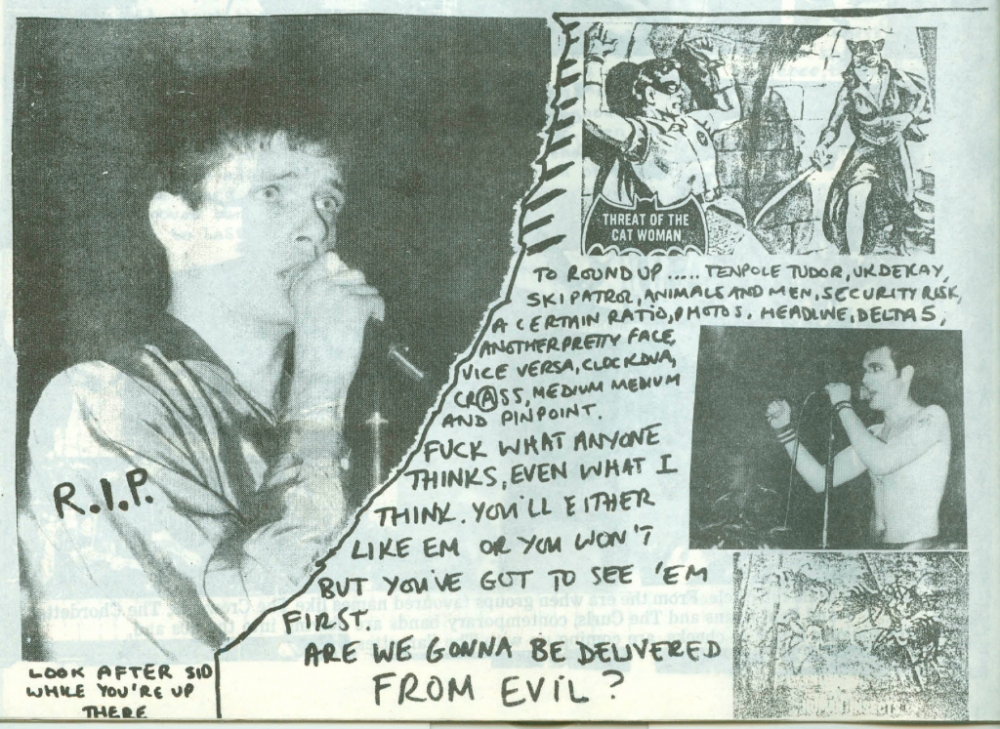 THREAT OF THE
CAT WOMAN
TO ROUND UP ..... TENPOLE TUDOR, UK DEKAY,
SKI PATROL, ANIMALS AND MEN, SECURITY RISK,
A CERTAIN RATIO, PHOTOS, HEADLINE, DELTA 5,
ANOTHER PRETTY FACE,
VICE VERSA, CLOCKDVA,
CRASS, MEDIUM MEDIUM
AND PINPOINT.
FUCK WHAT ANYONE
THINKS, EVEN WHAT I
THINK. YOU'LL EITHER
LIKE EM OR YOU WON'T
BUT YOU'VE GOT TO SEE 'EM
FIRST.
ARE WE GONNA BE DELIVERED
FROM EVIL?
R.I.P.
LOOK AFTER SID
WHILE YOU'RE UP
THERE